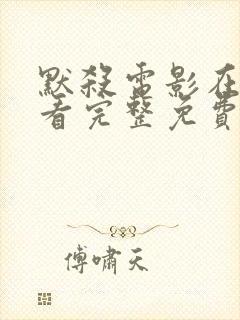 默殺電影在
看完整免費
傅嘯天